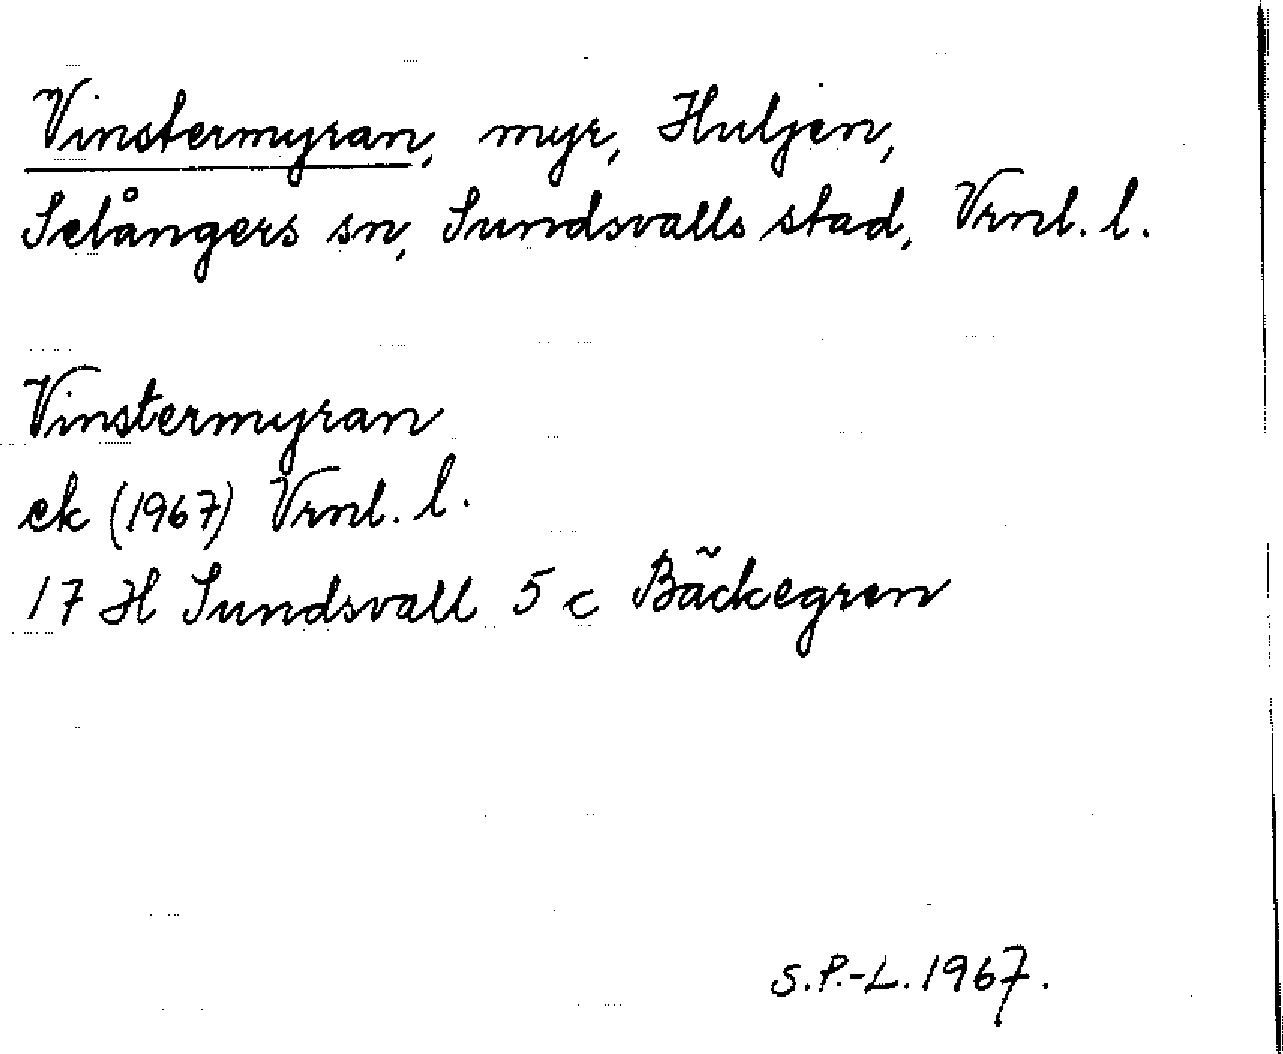 Vinstermyran, myr, Huljen,
Selångers sn, Sundsvalls stad, Vrnl. l.
Vinstermyran
ek (1967) Vrnl. l.
17 H Sundsvall 5 c Bäckegren
S.P.-L. 1967.